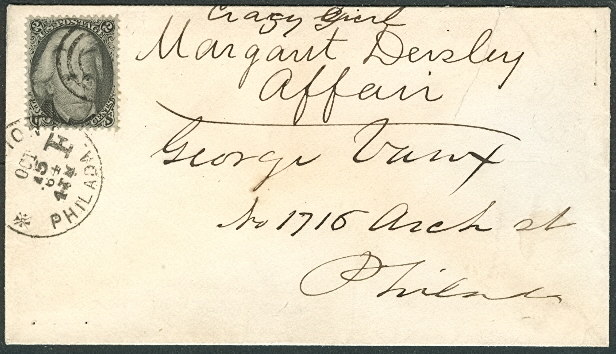 Crazy Girl
Margaret Deisley
Affair
George Vaux
No 1716 Arch st
Philada
U.S. POSTAGE
2 CENTS 2
OCT
PHILADA.